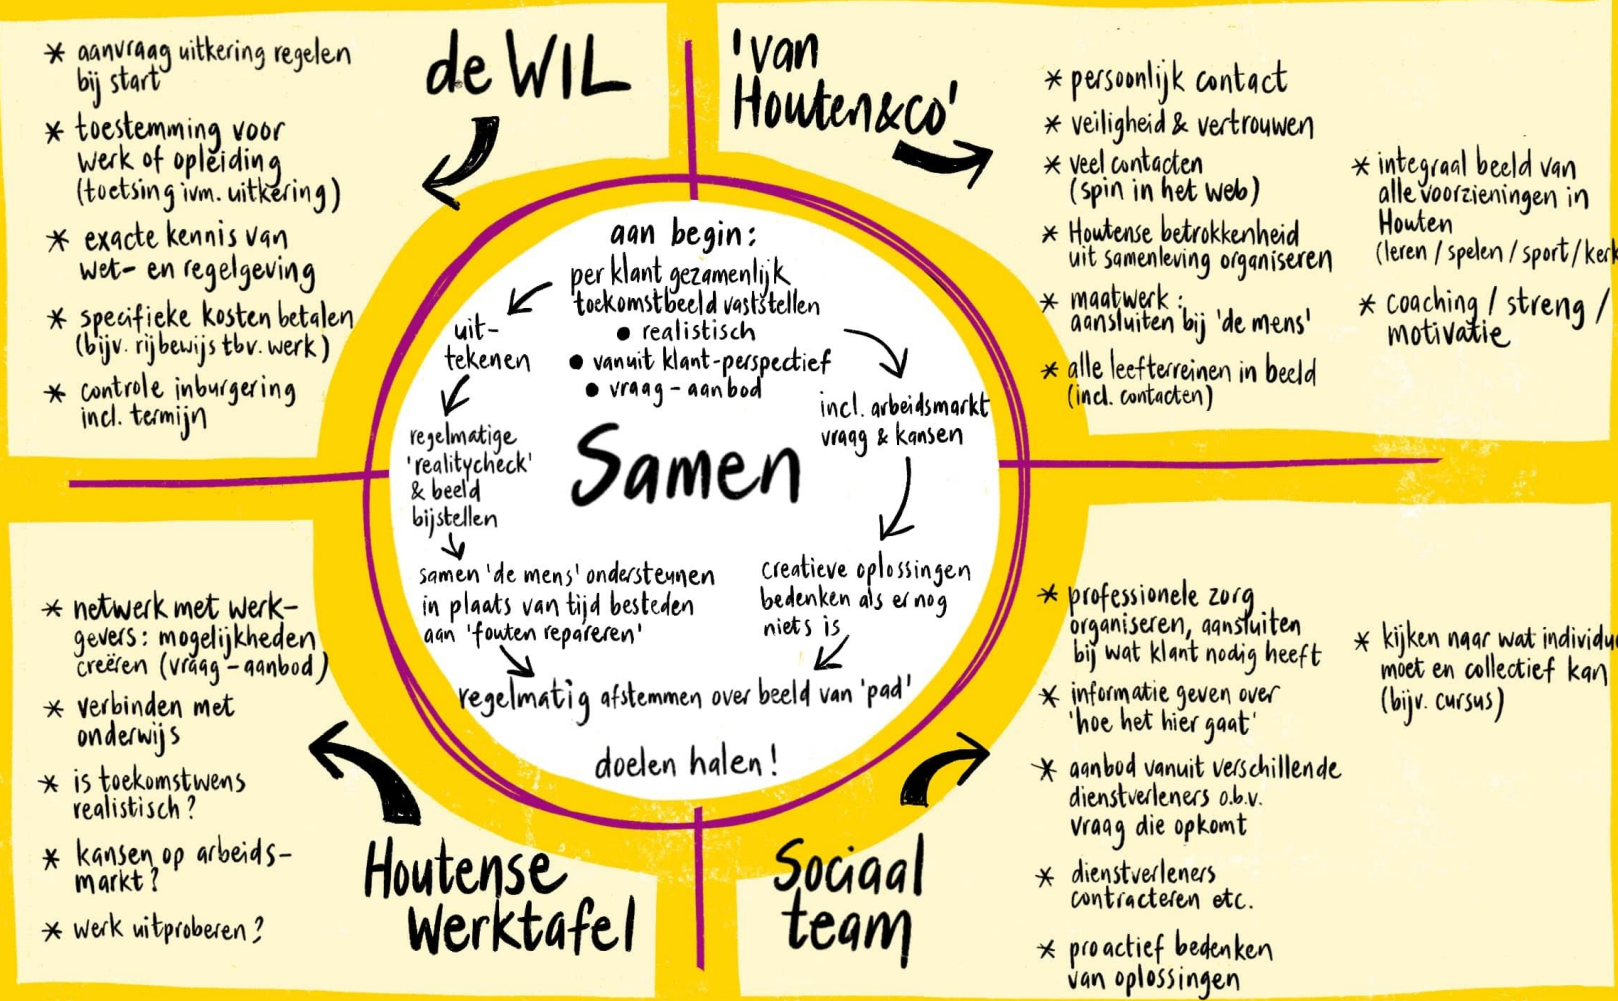 de WIL
* aanvraag uitkering regelen
bij start
* toestemming voor
werk of opleiding
(toetsing ivm. uitkering)
* exacte kennis van
wet- en regelgeving
* specifieke kosten betalen
(bijv. rijbewijs tbv. werk)
* controle inburgering
incl. termijn
'van
Houten&co'
* persoonlijk contact
* veiligheid & vertrouwen
* veel contacten
(spin in het web)
* Houtense betrokkenheid
uit samenleving organiseren
* maatwerk:
aansluiten bij 'de mens'
* alle leefterreinen in beeld
(incl. contacten)
* integraal beeld van
alle voorzieningen in
Houten
(leren / spelen / sport / kerk
* coaching / streng /
motivatie
aan begin:
per klant gezamenlijk
toekomstbeeld vaststellen
• realistisch
• vanuit klant-perspectief
• vraag - aanbod
uit-
tekenen
regelmatige
'realitycheck'
& beeld
bijstellen
incl. arbeidsmarkt
vraag & kansen
Samen
samen 'de mens' ondersteunen
in plaats van tijd besteden
aan 'fouten repareren'
creatieve oplossingen
bedenken als er nog
niets is
regelmatig afstemmen over beeld van 'pad'
doelen halen!
* netwerk met werk-
gevers: mogelijkheden
creëren (vraag - aanbod)
* verbinden met
onderwijs
* is toekomstwens
realistisch?
* kansen op arbeids-
markt?
* werk uitproberen?
Houtense
Werktafel
Sociaal
team
* professionele zorg
organiseren, aansluiten
bij wat klant nodig heeft
* informatie geven over
'hoe het hier gaat'
* aanbod vanuit verschillende
dienstverleners o.b.v.
vraag die opkomt
* dienstverleners
contracteren etc.
* pro actief bedenken
van oplossingen
* kijken naar wat individu
moet en collectief kan
(bijv. cursus)